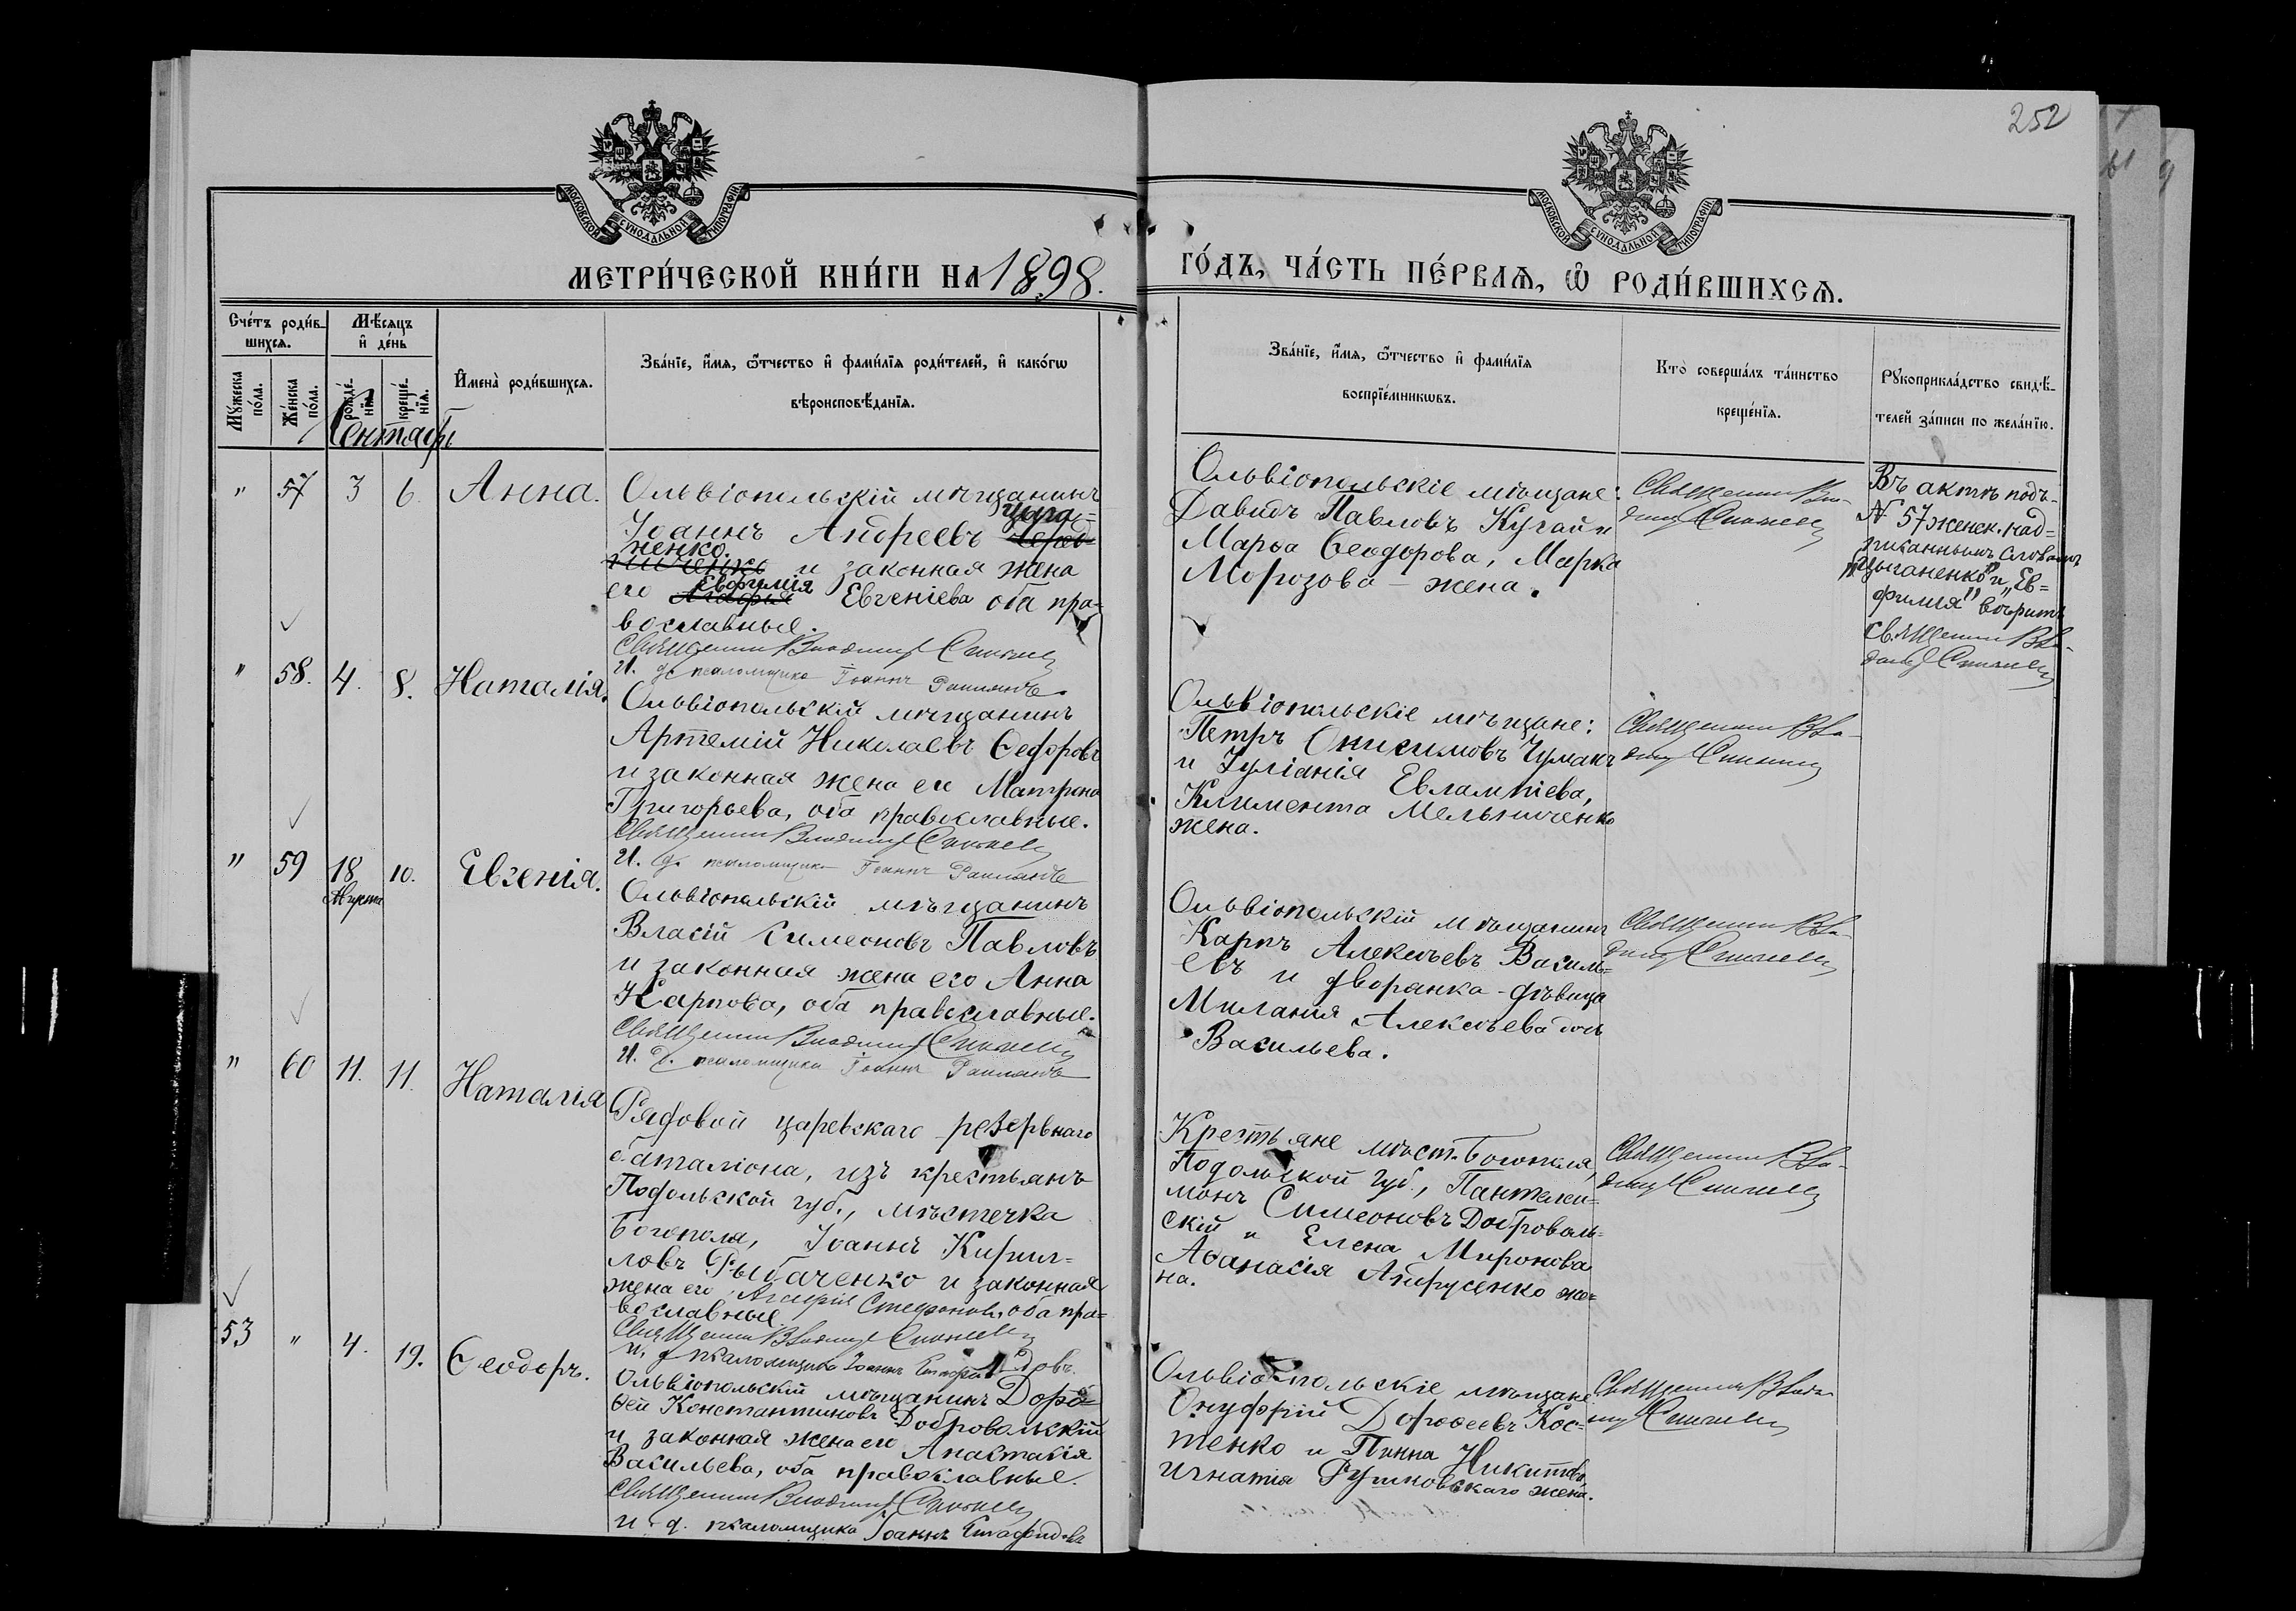 252
МОСКОВСКОЙ СѴНОДАЛЬНОЙ ТИПОГРАФІИ
МОСКОВСКОЙ СѴНОДАЛЬНОЙ ТИПОГРАФІИ
МЕТРИ́ЧЕСКОЙ КНИ́ГИ НА 1898.
ГО́ДЪ, ЧА́СТЬ ПЕ́РВАѦ, Ѽ РОДИ́ВШИХСѦ.
Сче́тъ роди́в-
шихсѧ.
Мꙋжеска
по́ла.
Же́нска
по́ла.
Мѣ́сѧцъ
и҆ де́нь
рожде́-
нїѧ.
креще́-
нїѧ.
Сентябр.
И҆мена̀ роди́вшихсѧ.
Зва́нїе, и҆́мѧ, ѻ҆́тчество и҆ фами́лїѧ роди́телей, и҆ како́гѡ
вѣроисповѣ́данїѧ.
Зва́нїе, и҆́мѧ, ѻ҆́тчество и҆ фами́лїѧ
воспрїе́мникѡвъ.
Кто̀ соверша́лъ та́инство
креще́нїѧ.
Рꙋкоприкла́дство свидѣ́-
телей за́писи по жела́нїю.
" 57 3 6. Анна.
Ольвіопольскій мѣщанинъ
Іоаннъ Андреевъ Цига-
ненко. и законная жена
его Евфимія Евгеніева оба пра-
вославные.
Священник Владимир
И. д. псаломщика Іоаннъ
Ольвіопольскіе мѣщане:
Давидъ Павловъ Кугай и
Марѳа Ѳеодорова, Марка
Морозова – жена.
Священник Вла-
димир
Въ актѣ подъ
№ 57 женск. над-
писаннымъ словамъ
"Цыганенко" и "Ев-
фимія" вѣрить
Священник Вла-
димир
" 58. 4. 8. Наталія.
Ольвіопольскій мѣщанинъ
Артемій Николаевъ Ѳедоровъ
и законная жена его Матрона
Григорьева, оба православные.
Священник Владимир
И. д. псаломщика Іоаннъ
Ольвіопольскіе мѣщане:
Петръ Онисимовъ Чумакъ
и Іуліанія Евлампіева,
Климента Мельниченко
жена.
Священник Вла-
димир
" 59 18 10. Евгенія.
Августа
Ольвіопольскій мѣщанинъ
Власій Симеоновъ Павловъ
и законная жена его Анна
Карпова, оба православные.
Священник Владимир
И. д. псаломщика Іоаннъ
Ольвіопольскій мѣщанинъ
Карпъ Алексѣевъ Василь-
евъ и дворянка-дѣвица
Миланія Алексѣева дочь
Васильева.
Священник Вла-
димир
" 60 11. 11. Наталія
Рядовой царевскаго резервнаго
баталіона, изъ крестьянъ
Подольской губ., мѣстечка
Богополя, Іоаннъ Кирил-
ловъ Рыбаченко и законная
жена его Агафія Стефанова, оба пра-
вославные.
Священник Владимир
И. д. псаломщика Іоаннъ
Крестьяне мѣст. Богополя,
Подольской губ., Пантелеи-
монъ Симеоновъ Доброволь-
скій и Елена Миронова
Аѳанасія Андрусенко же-
на.
Священник Вла-
димир
53 " 4. 19. Ѳеодоръ.
Ольвіопольскій мѣщанинъ Доро-
ѳей Константиновъ Добровольскій
и законная жена его Анастасія
Васильева, оба православные.
Священник Владимир
И. д. псаломщика Іоаннъ
Ольвіопольскіе мѣщане
Онуфрій Дороѳеевъ Кос-
тенко и Пинна Никитова
Игнатія Рушковскаго жена.
Священник Влади-
мир